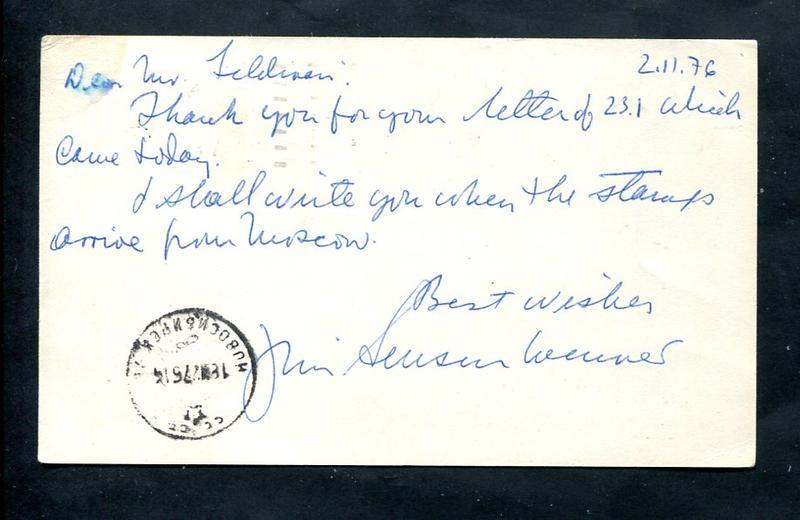 Dear Mr. Feldman. 2.11.76
Thank you for your letter of 23.1 which
came today.
I shall write you when the stamps
arrive from Moscow.
Best wishes
Jim
НОВОСИБИРСК
СССР